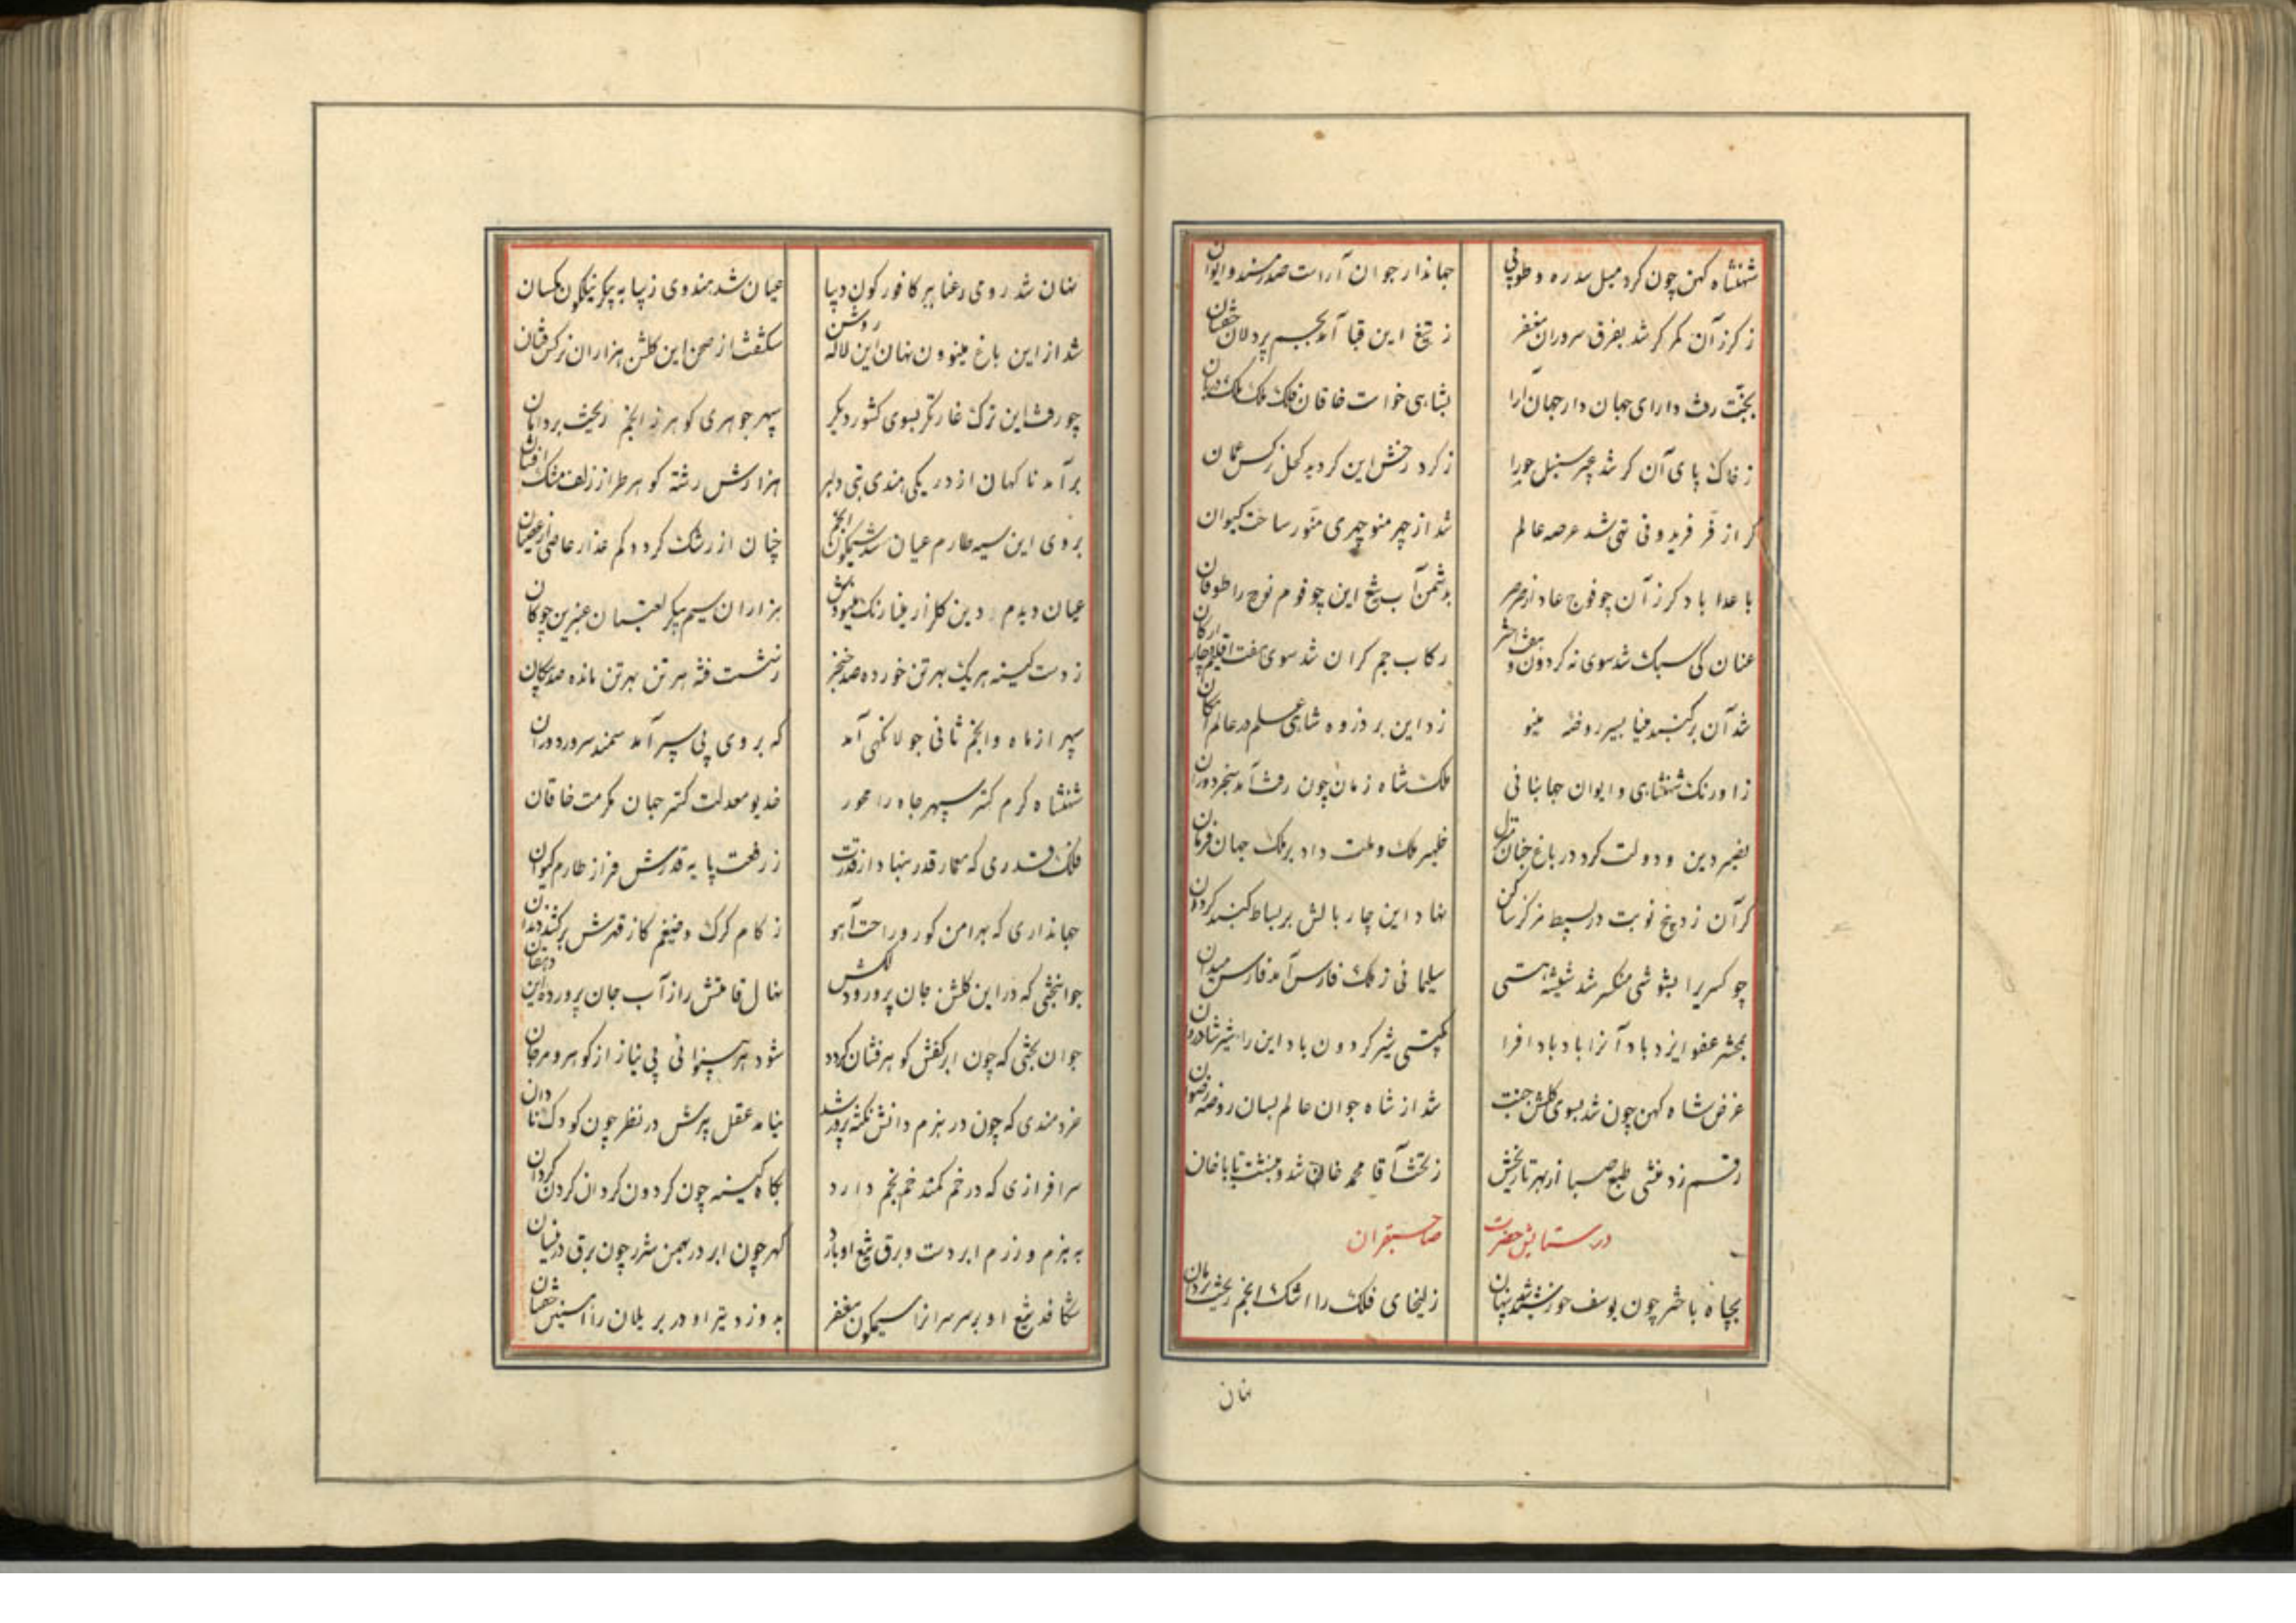 شهنشاه کهن چون کرد میل سدره و طوبی جهاندار جوان آراست صدر مسند و ایوان
ز کرز آن کمر کر شد بفرق سروران مغفر ز تیغ این قبا آمد بجسم پردلان خفتان
بجنت رفت دارای جهان دار جهان آرا بشاهی خواست خاقان فلک ملک ملک دربان
ز خاک پای آن کر شد عبیر سنبل حورا ز کرد رخش این کردید کحل نرکس غلمان
کر از فر فریدونی تهی شد عرصه عالم شد از چهر منوچهری منور ساحت کیوان
باعدا باد کرز آن چو فوج عاد از صرصر بدشمن آب تیغ این چو قوم نوح را طوفان
عنان کی سبک شد سوی نه کردون و هفت اختر رکاب جم کران شد سوی هفت اقلیم و چار ارکان
شد آن بر کنبد مینا بسیر روضه مینو زد این بر ذروه شاهی علم در عالم امکان
ز اورنک شهنشاهی و ایوان جهانبانی ملک شاه زمان چون رفت آمد سنجر دوران
نصیر دین و دولت کرد در باغ جنان منزل ظهیر ملک و ملت داد بر ملک جهان فرمان
کر آن زد پنج نوبت در بسیط مرکز ساکن نهاد این چار بالش بر بساط کنبد کردان
چو کسری را بشوشی منکسر شد شیشه هستی سلیمانی ز ملک فارس آمد فارس میدان
بمحشر عفو ایزد باد آنرا باد بادافرا بکیتی شیر کردون باد این را شیر شادروان
غرض شاه کهن چون شد بسوی کلشن جنت شد از شاه جوان عالم بسان روضه رضوان
رقم زد منشی طبع صبا از بهر تاریخش ز تخت آقا محمد خان شد و بنشست باباخان
در ستایش حضرت صاحبقران
بچاه باختر چون یوسف خورشید شد پنهان زلیخای فلک را اشک انجم ریخت بر دامان
نهان
نهان شد روی رعنا پیر کافورکون دیبا عیان شد هندوی زیبا به پیکر نیلکون کسان
شد از این باغ مینو ون نهان این لاله روشن شکفت از صحن این کلشن هزاران نرکس فتان
چو رفت این ترک غارتکر بسوی کشور دیکر سپهر جوهری کوهر ز انجم ریخت بر دامان
برآمد ناکهان از در یکی هندی بتی دلبر هزارش رشته کوهر طراز زلف مشک افشان
بروی این سیه طارم عیان شد شبکون انجم چنان از رشک کردد کم عذار عاصی از عصیان
عیان دیدم درین کلزار مینا رنک مینووش هزاران سیم پیکر لعبتان عنبرین چوکان
ز دست کینه هر یک بهر تن خورده صد خنجر ز شست فتنه هر تن بهر تن مانده صد پیکان
سپهر از ماه و انجم ثانی جولانکهی آمد که بر وی پی سپر آمد سمند سرور دوران
شهنشاه کرم کستر سپهر جاه را محور خدیو معدلت کستر جهان مکرمت خاقان
فلک قدری که معمار قدر بنهاد از قدرت ز رفعت پایه قدرش فراز طارم کیوان
جهانداری که بهر امن کور و راحت آهو ز کام کرک و ضیغم کاز قهرش برکند دندان
جوانبختی که در این کلشن جان پرور دلکش نهال قامتش را ز آب جان پرورده این دهقان
جوان بختی که چون ابر کفش کوهر فشان کردد شود هر بینوائی بی نیاز از کوهر و مرجان
خردمندی که چون در بزم دانش نکته پرور شد نیامد عقل پیرش در نظر چون کودک نادان
سرافرازی که در خم کمند خم بخم دارد بکاه کینه چون کردون کردان کردن کردان
به بزم و رزم ابر دست و برق تیغ او بارد کهر چون ابر در بهمن شرر چون برق در نیسان
شکافد تیغ او بر سر سرانرا سیمکون مغفر بدوزد تیر او در بر یلان را آهنین خفتان